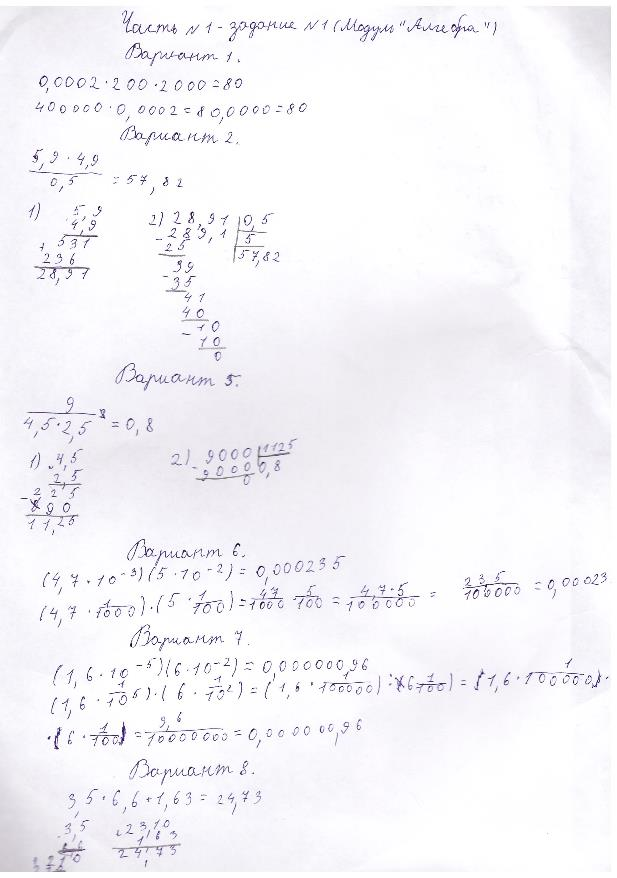 Часть №1 - задание №1 (Модуль "Алгебра")
Вариант 1.
0,0002·200·2000=80
400000·0,0002=80,0000=80
Вариант 2.
5,9·4,9
0,5
=57,82
1) 5,9
4,9
+ 531
236
28,91
2) 28,91 | 0,5
- 289,1 | 5
25 | 57,82
39
- 35
41
40
- 10
10
0
Вариант 5.
9
4,5·2,5
= 0,8
1) 4,5
2,5
2 2 5
9 0
11,25
2) 9000 | 1125
- 9000 | 0,8
0
Вариант 6.
(4,7·10⁻³)(5·10⁻²) = 0,000235
(4,7·1/1000)·(5·1/100) = 4,7/1000·5/100 = 4,7·5/100000 = 235/100000 = 0,00023
Вариант 7
(1,6·10⁻⁵)(6·10⁻²) = 0,00000096
(1,6·1/10⁵)·(6·1/10²) = (1,6·1/100000)·(6 1/100) = (1,6·1/100000)·
·(6·1/100) = 9,6/10000000 = 0,00000096
Вариант 8.
3,5·6,6+1,63=24,73
3,5
23,10
1 6 3
24,73